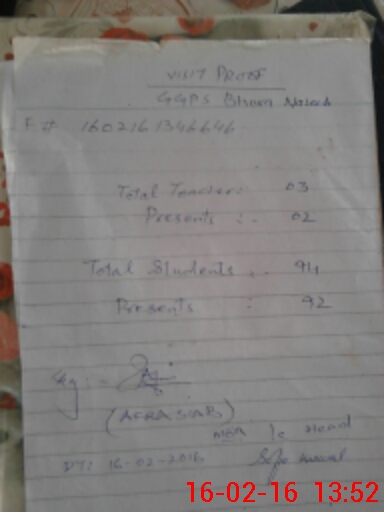 VISIT PROOF
GGPS
F # 160216 1346646
Total Teachers: 03
Presents : . 02
Total Students . . 94
Presents : 92
Sig: -
(AFRASIAB)
MEA
DT: 16-02-2016
16-02-16 13:52